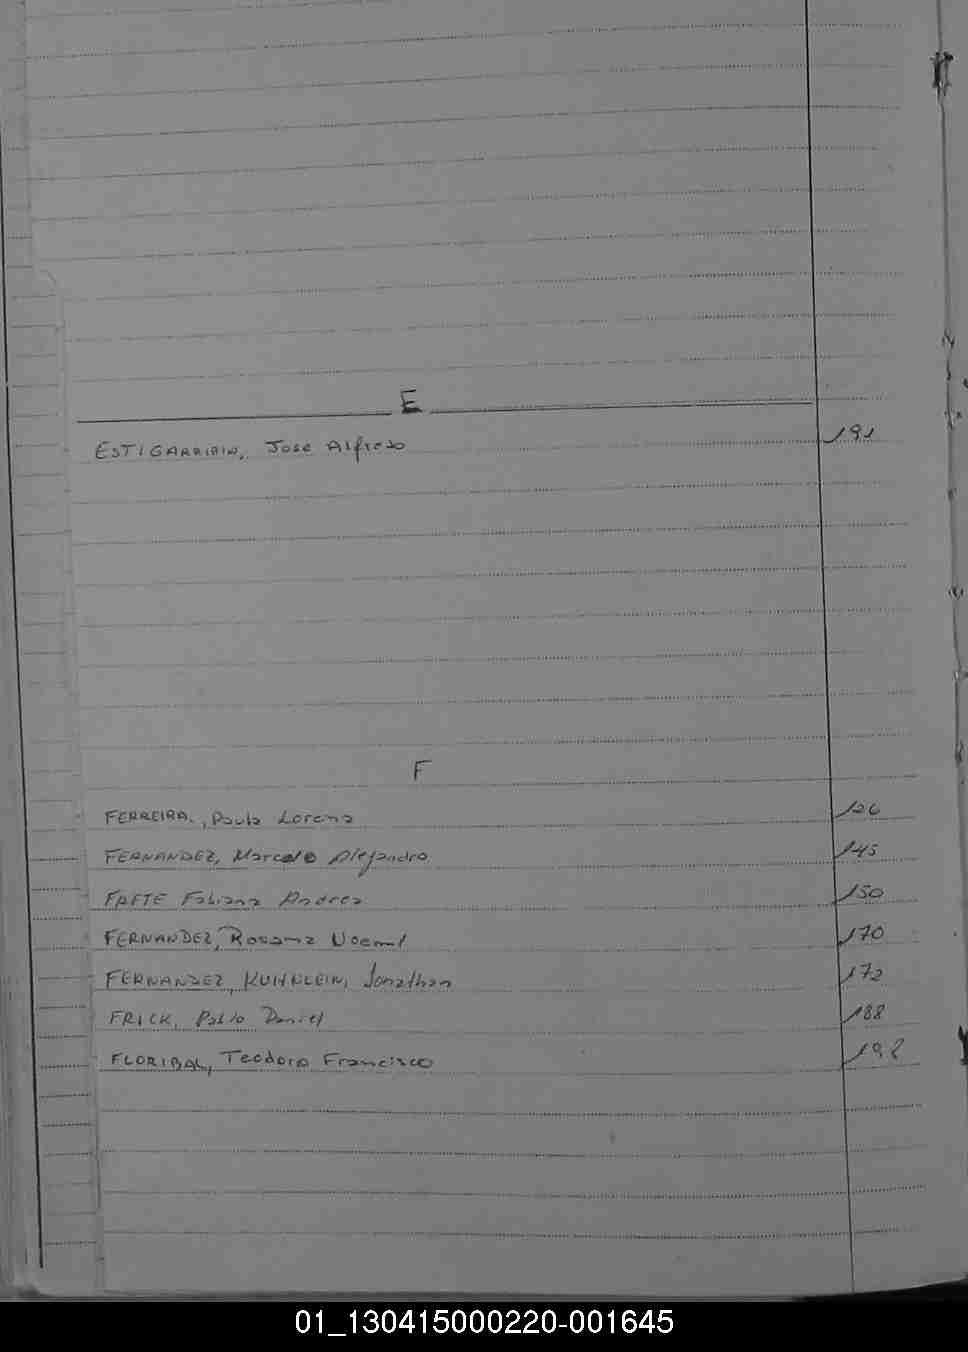 E
ESTIGARRIBIA, Jose Alfredo 191
F
FERREIRA, Paula Lorena 126
FERNANDEZ, Marcelo Alejandro 145
FRETE Fabiana Andrea 150
FERNANDEZ, Rosana Noemi 170
FERNANDEZ, KUHNLEIN, Jonathan 172
FRICK, Pablo Daniel 188
FLORIBAL, Teodoro Francisco 198
01_130415000220-001645